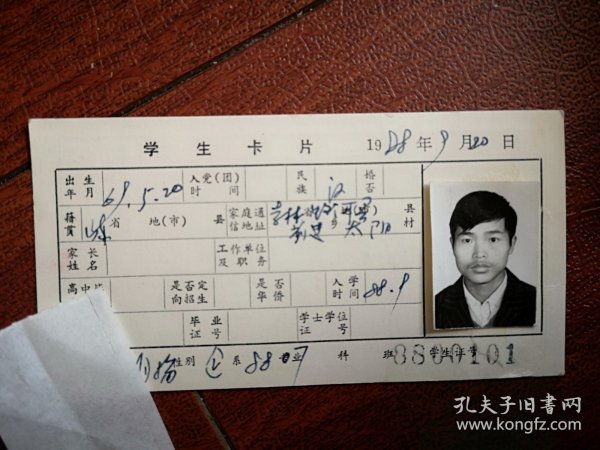 学生卡片 1988年9月20日
出生年月 69.5.20 入党(团)时间 民族 汉 婚否
籍贯 山东 省 地(市) 县 家庭通信地址 吉林 县 乡 太阳 村
家长姓名 工作单位及职务
高中毕 是否定向招生 是否华侨 入学时间 88.9
毕业证号 学士学位证号
性别 系 8807 业 科 班 学生证号 8800101
孔夫子旧书网
www.kongfz.com